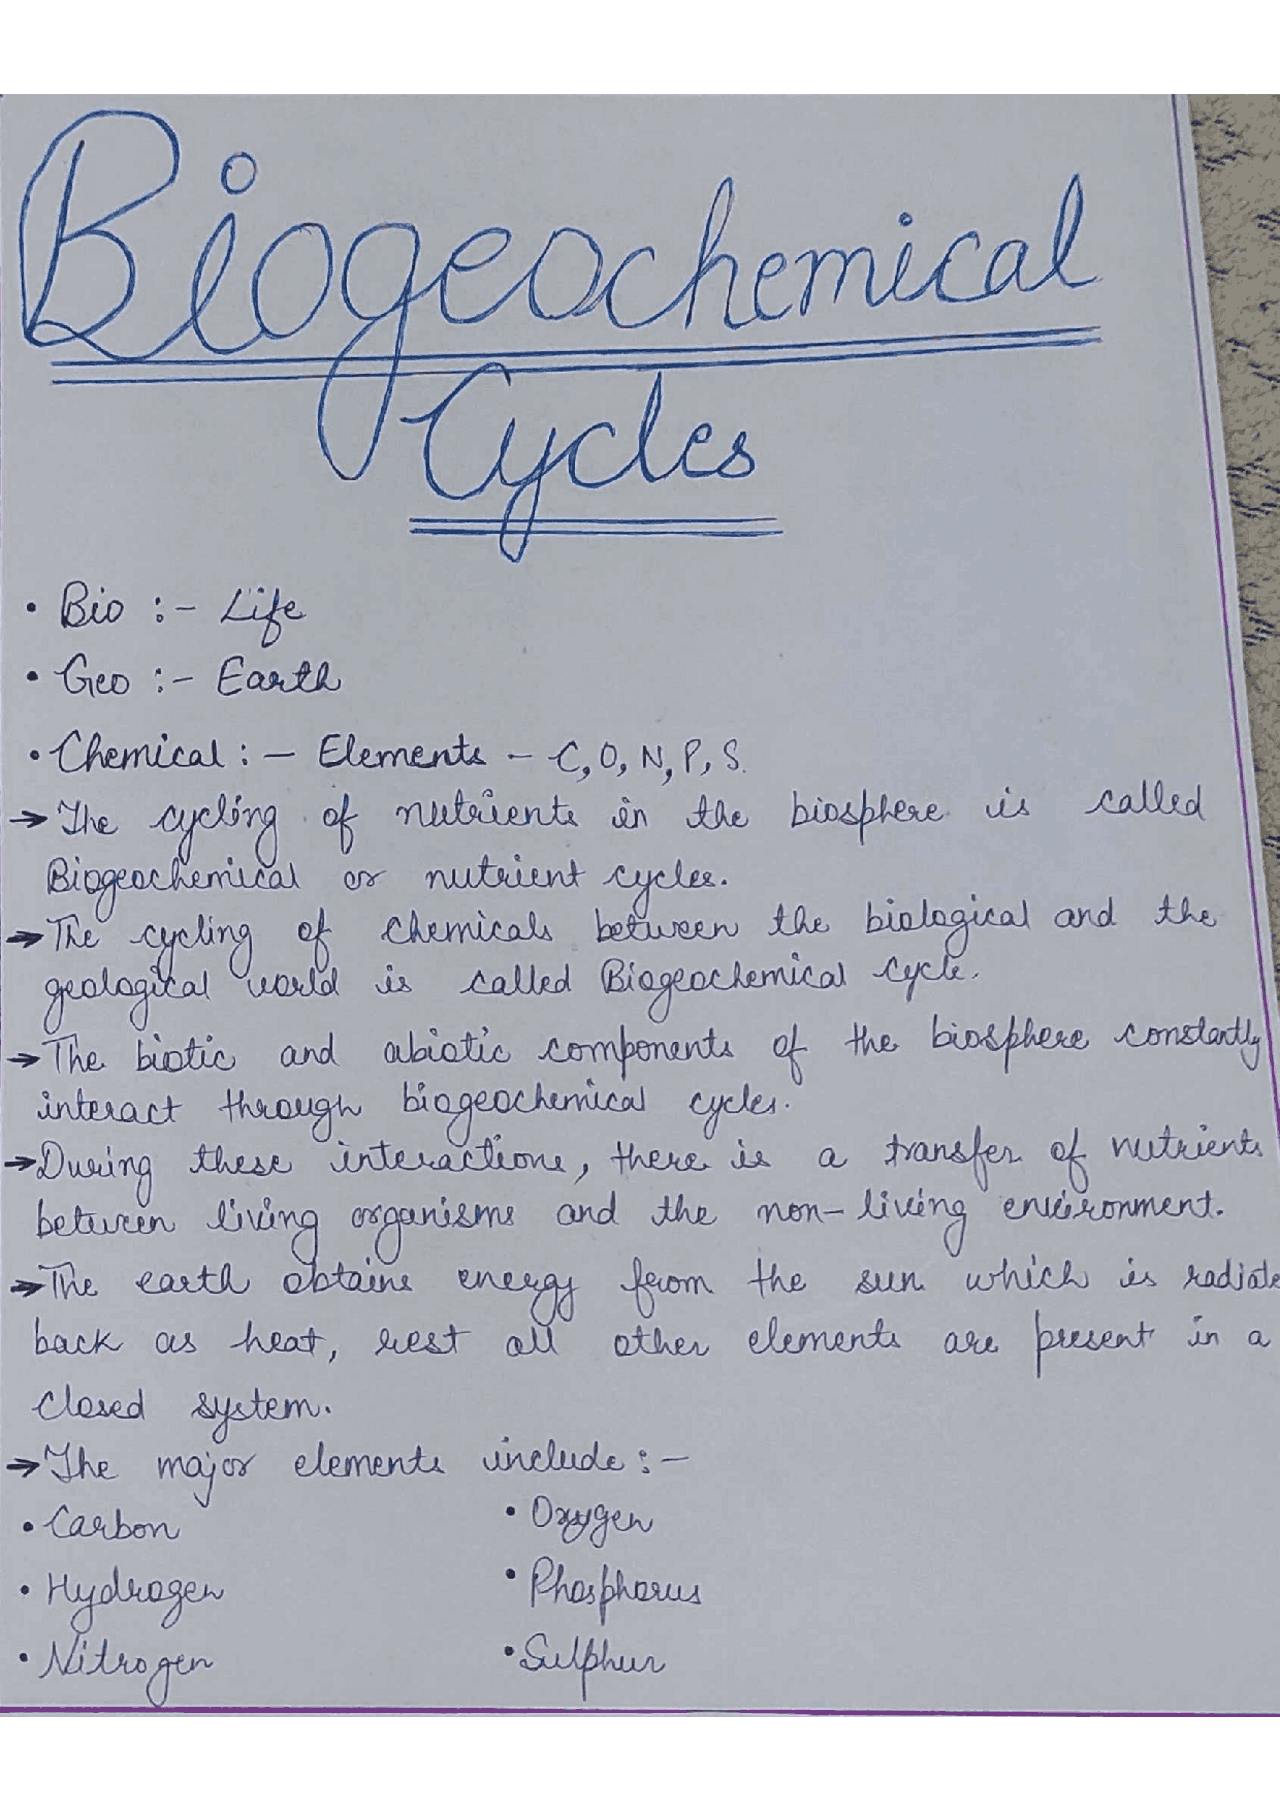 Biogeochemical
Cycles
• Bio :- Life
• Geo :- Earth
• Chemical :- Elements - C, O, N, P, S.
→ The cycling of nutrients in the biosphere is called
Biogeochemical or nutrient cycles.
→ The cycling of chemicals between the biological and the
geological world is called Biogeochemical cycle.
→ The biotic and abiotic components of the biosphere constantly
interact through biogeochemical cycles.
→ During these interactions, there is a transfer of nutrients
between living organisms and the non-living environment.
→ The earth obtains energy from the sun which is radiate
back as heat, rest all other elements are present in a
closed system.
→ The major elements include :-
• Carbon • Oxygen
• Hydrogen • Phosphorus
• Nitrogen • Sulphur